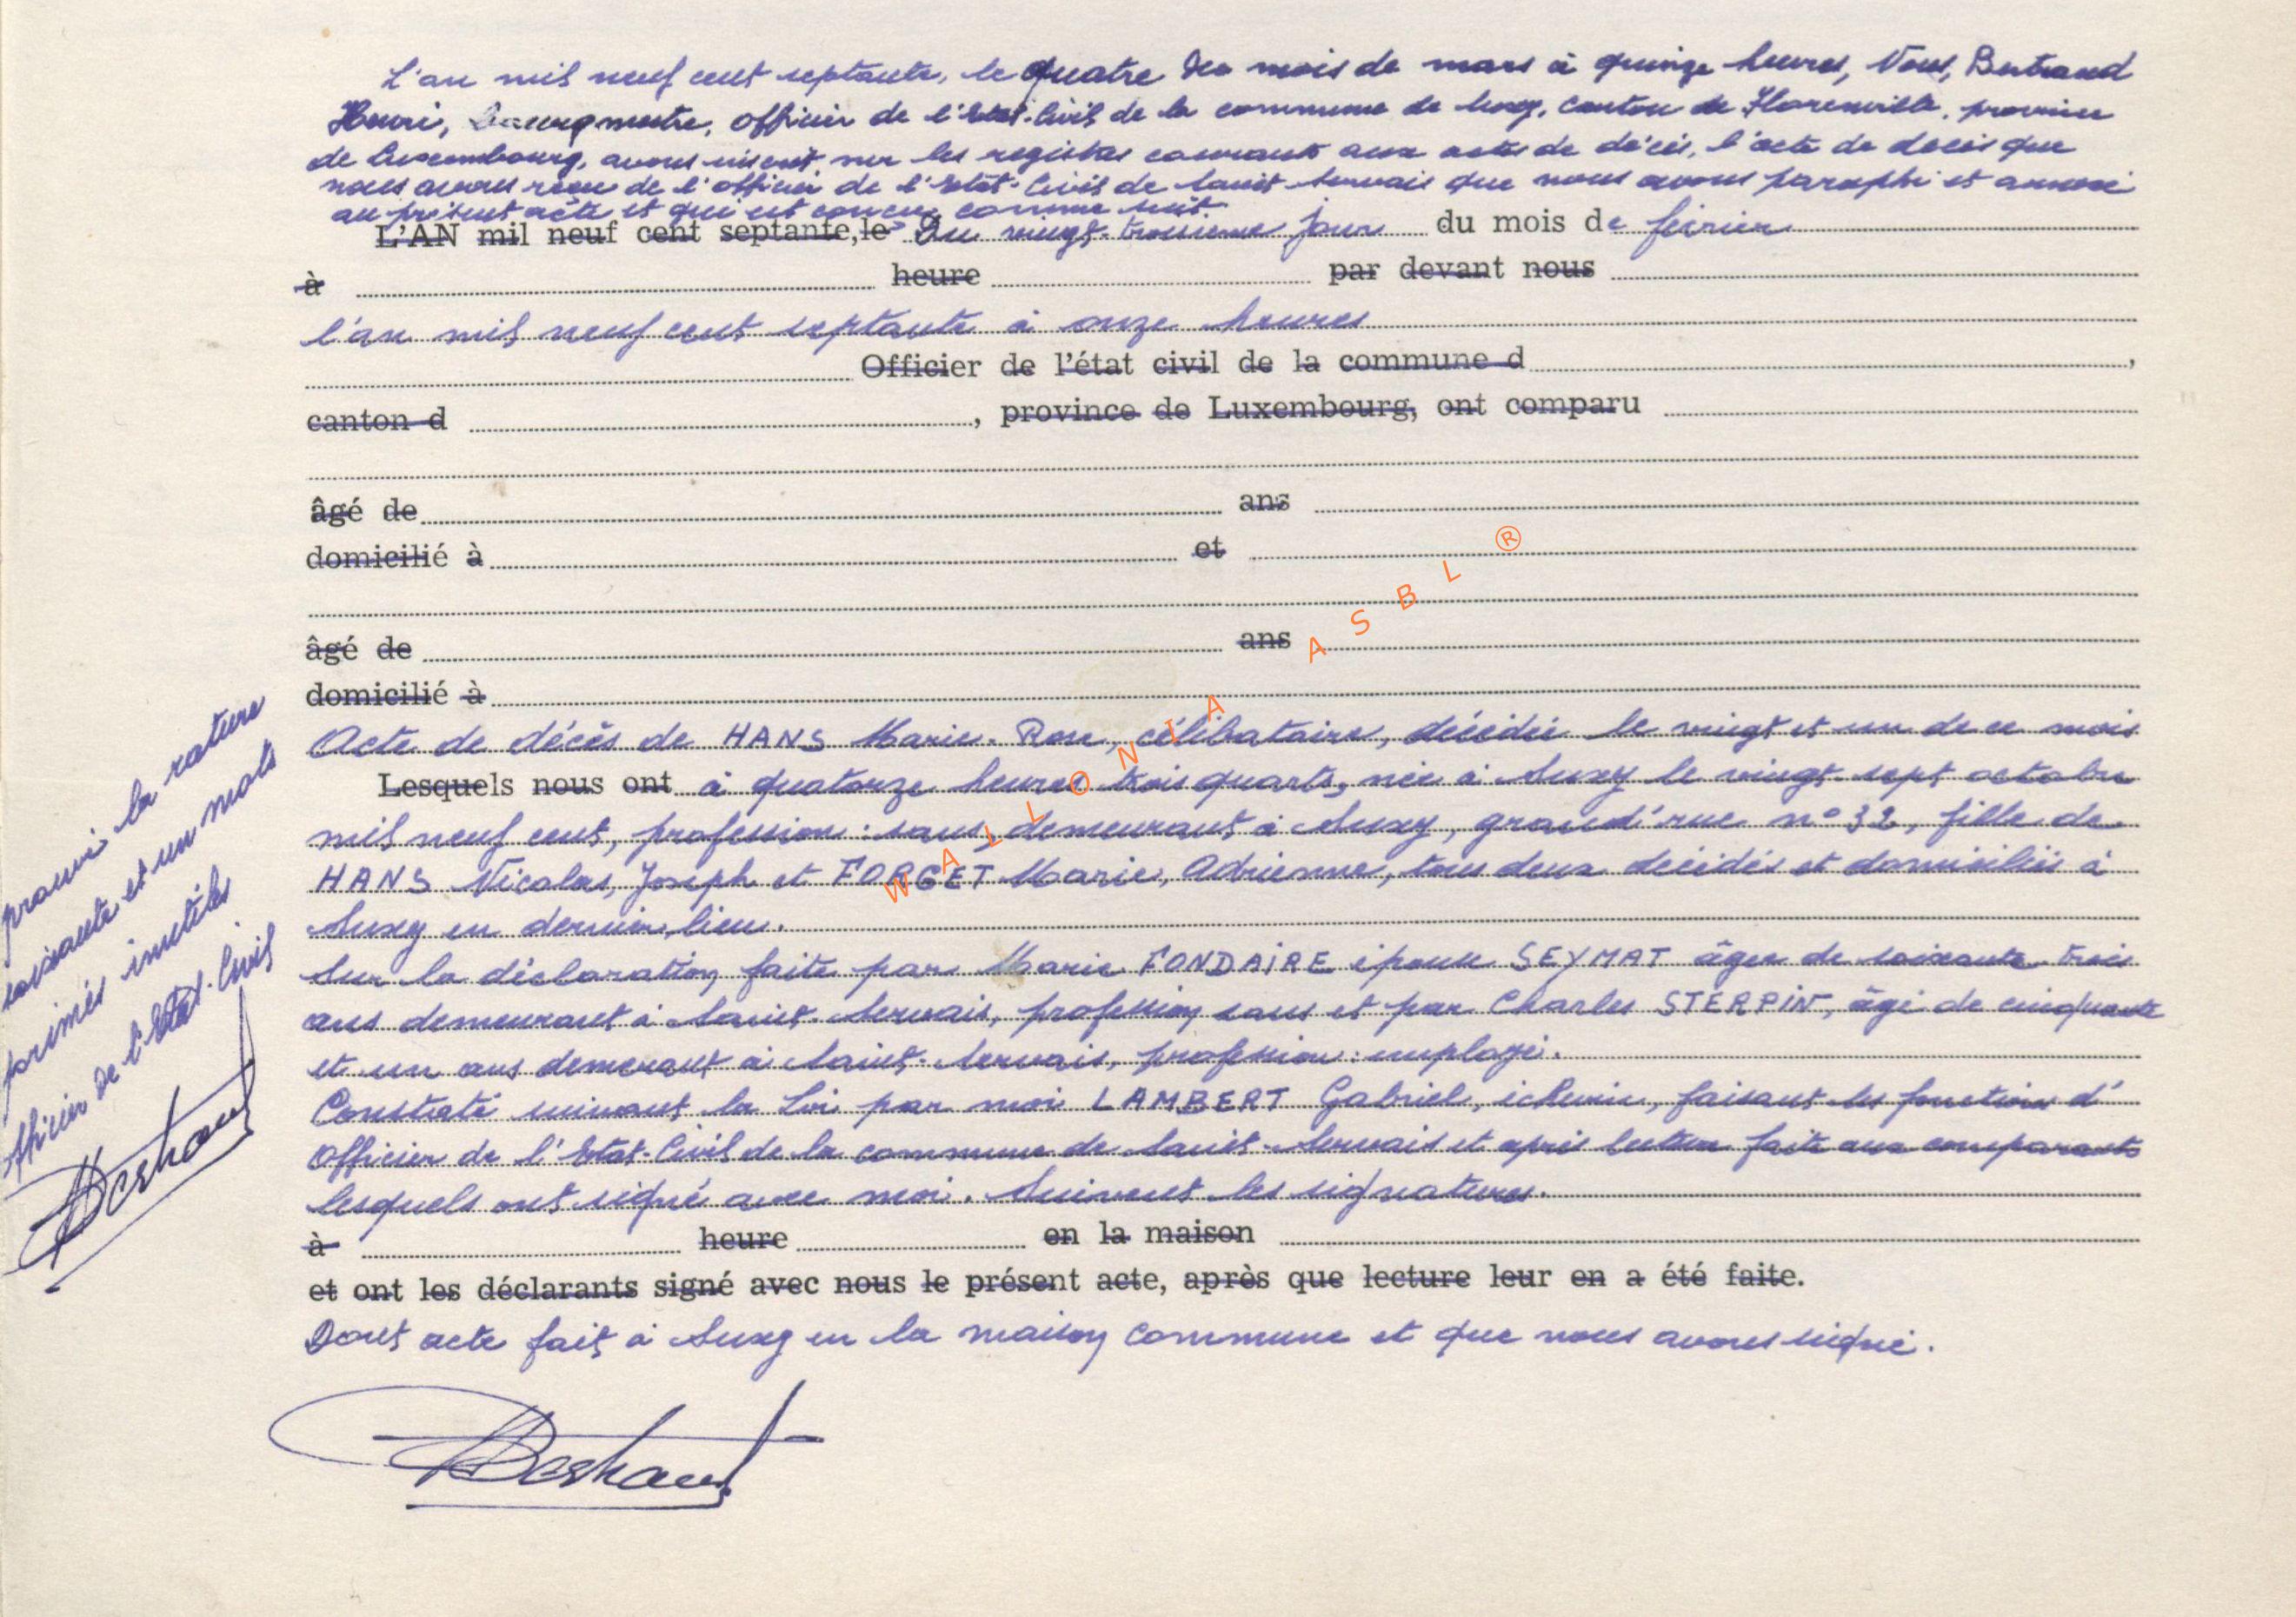 L'an mil neuf cent septante, le quatre du mois de mars à quinze heures, Nous, Bertrand
Henri, bourgmestre, officier de l'Etat-Civil de la commune de Suxy, canton de Florenville, province
de Luxembourg, avons inscrit sur les registres courants aux actes de décès, l'acte de décès que
nous avons reçu de l'officier de l'Etat-Civil de Saint-Servais que nous avons paraphé et annexé
au présent acte et qui est conçu comme suit
L'AN mil neuf cent septante, le Du vingt-troisième jour du mois de février
à heure par devant nous
l'an mil neuf cent septante à onze heures
Officier de l'état civil de la commune d ,
canton d , province de Luxembourg, ont comparu
âgé de ans
domicilié à et
âgé de ans
domicilié à
Acte de décès de HANS Marie-Rose, célibataire, décédée le vingt et un de ce mois
Lesquels nous ont à quatorze heures trois quarts, née à Suxy le vingt-sept octobre
mil neuf cent, profession : sans, demeurant à Suxy, grand'rue n° 32, fille de
HANS Nicolas, Joseph et FORGET Marie, Adrienne, tous deux décédés et domiciliés à
Suxy en dernier lieu.
Sur la déclaration faite par Marie FONDAIRE épouse SEYMAT âgée de soixante-trois
ans demeurant à Saint-Servais, profession sans et par Charles STERPIN, âgé de cinquante
et un ans demeurant à Saint-Servais, profession : employé.
Constaté suivant la Loi par moi LAMBERT Gabriel, échevin, faisant les fonctions d'
Officier de l'Etat-Civil de la commune de Saint-Servais et après lecture faite aux comparants
lesquels ont signé avec moi. Suivent les signatures.
à heure en la maison
et ont les déclarants signé avec nous le présent acte, après que lecture leur en a été faite.
Dont acte fait à Suxy en la maison commune et que nous avons signé.
la rature
soixante et un mots
inutiles
Officier de l'Etat-Civil
WALLONIA ASBL ®